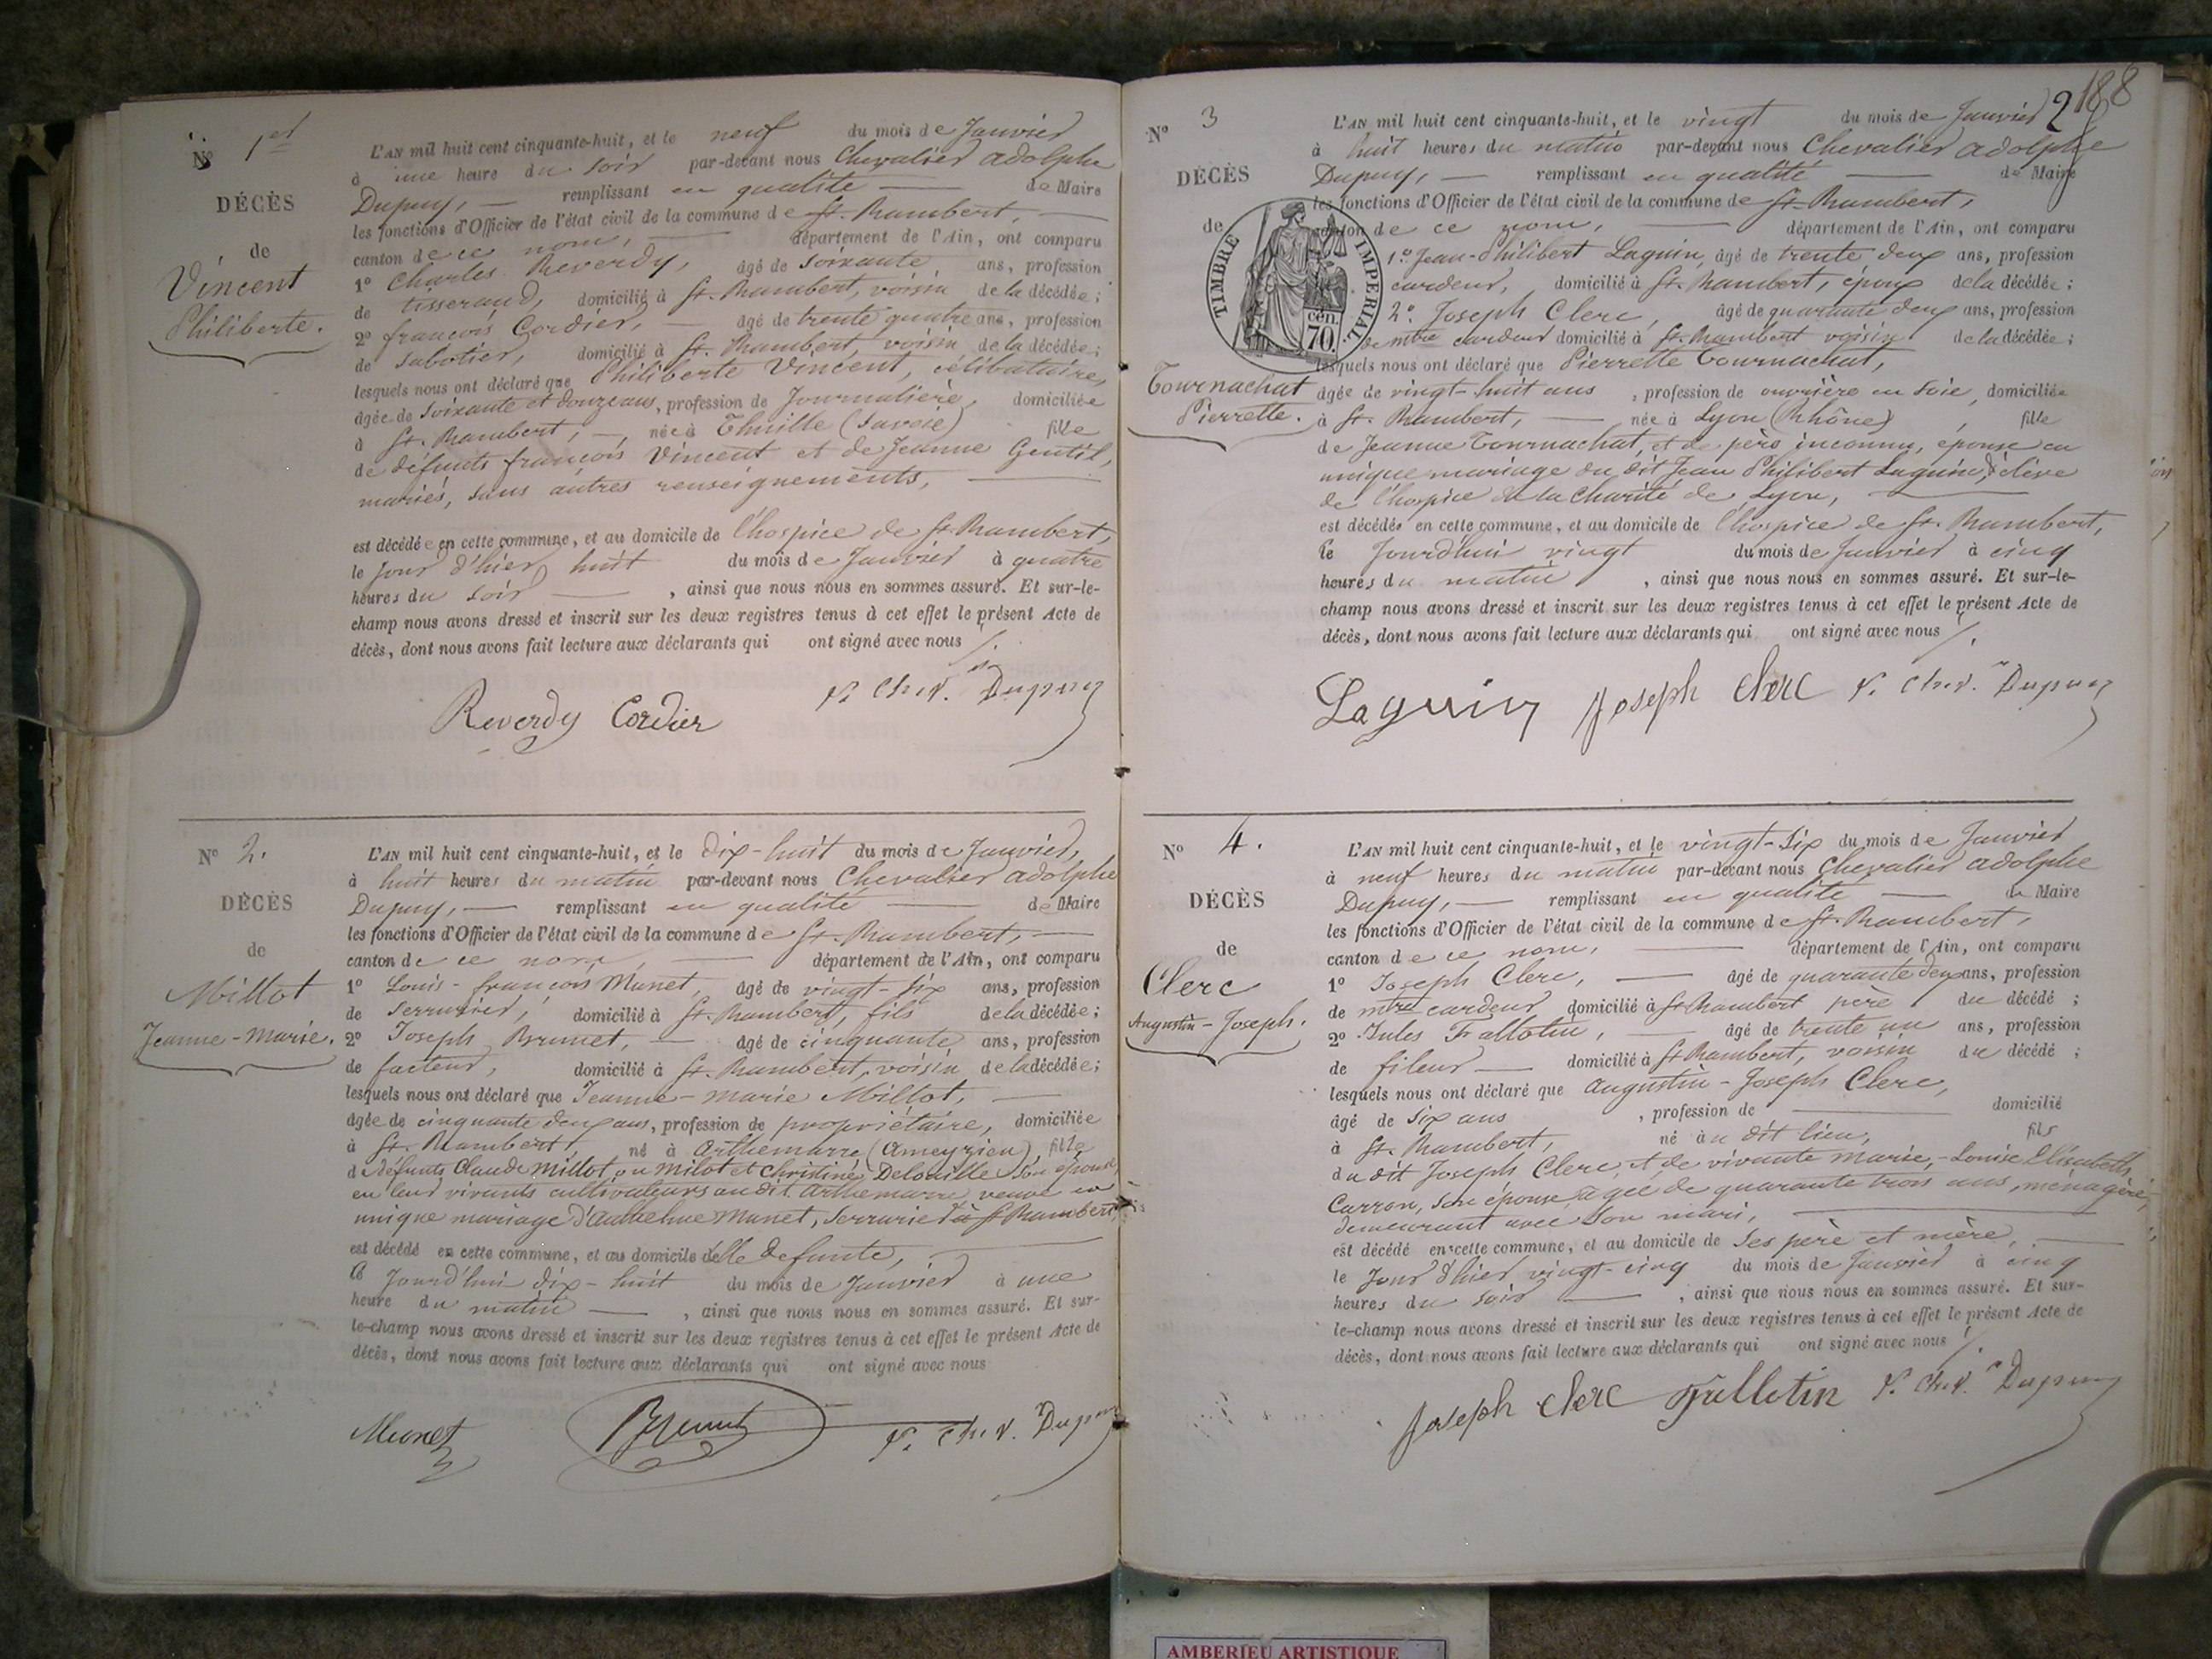 N° 1er
DÉCÈS
de
Vincent
Philiberte.
L'AN mil huit cent cinquante-huit, et le neuf du mois de Janvier
à une heure du soir par-devant nous Chevalier Adolphe
Dupuy, — remplissant en qualité — de Maire
les fonctions d'Officier de l'état civil de la commune de St. Rambert, —
canton de ce nom, — département de l'Ain, ont comparu
1° Charles Reverdy, âgé de soixante ans, profession
de tisserand, domicilié à St. Rambert, voisin de la décédée;
2° françois Cordier, — âgé de trente quatre ans, profession
de Sabotier, domicilié à St. Rambert, voisin de la décédée;
lesquels nous ont déclaré que Philiberte Vincent, célibataire,
âgée de soixante et douze ans, profession de Journalière, domiciliée
à St. Rambert, — née à Thuille (Savoie) fille
de défunts françois Vincent et de Jeanne Gentil,
mariés, sans autres renseignements, —
est décédée en cette commune, et au domicile de l'hospice de St. Rambert,
le jour d'hier huit du mois de Janvier à quatre
heures du soir — , ainsi que nous nous en sommes assuré. Et sur-le-
champ nous avons dressé et inscrit sur les deux registres tenus à cet effet le présent Acte de
décès, dont nous avons fait lecture aux déclarants qui ont signé avec nous
Reverdy Cordier Chev. Dupuy
N° 2.
DÉCÈS
de
Millot
Jeanne-Marie.
L'AN mil huit cent cinquante-huit, et le dix-huit du mois de Janvier,
à huit heures du matin par-devant nous Chevalier Adolphe
Dupuy, — remplissant en qualité — de Maire
les fonctions d'Officier de l'état civil de la commune de St. Rambert, —
canton de ce nom, — département de l'Ain, ont comparu
1° Louis-françois Munet, âgé de vingt-six ans, profession
de Serrurier, domicilié à St. Rambert, fils de la décédée;
2° Joseph Brunet, — âgé de cinquante ans, profession
de facteur, domicilié à St. Rambert, voisin de la décédée;
lesquels nous ont déclaré que Jeanne-Marie Millot, —
âgée de cinquante deux ans, profession de propriétaire, domiciliée
à St. Rambert, né à Arthemarre (Ameyzieu), fille
de défunts Claude Millot ou Milot et Christine Delouille son épouse,
en leur vivants cultivateurs au dit Arthemarre, veuve en
unique mariage d'Anthelme Munet, Serrurier à St Rambert,
est décédé en cette commune, et au domicile d'elle défunte, —
le Jourd'hui dix-huit du mois de Janvier à une
heure du matin — , ainsi que nous nous en sommes assuré. Et sur-
le-champ nous avons dressé et inscrit sur les deux registres tenus à cet effet le présent Acte de
décès, dont nous avons fait lecture aux déclarants qui ont signé avec nous
Munet Brunet Chev. Dupuy
2 188
N° 3
DÉCÈS
de
TIMBRE IMPÉRIAL
cen. 70.
Tournachat
Pierrette.
L'AN mil huit cent cinquante-huit, et le vingt du mois de Janvier
à huit heures du matin par-devant nous Chevalier Adolphe
Dupuy, — remplissant en qualité — de Maire
les fonctions d'Officier de l'état civil de la commune de St. Rambert,
canton de ce nom, — département de l'Ain, ont comparu
1° Jean-Philibert Laguin, âgé de trente deux ans, profession
cardeur, domicilié à St. Rambert, époux de la décédée;
2° Joseph Clerc, âgé de quarante deux ans, profession
de mtre cardeur domicilié à St. Rambert voisin de la décédée;
lesquels nous ont déclaré que Pierrette Tournachat,
âgée de vingt-huit ans , profession de ouvrière en soie, domiciliée
à St. Rambert, — née à Lyon (Rhône) , fille
de Jeanne Tournachat, et de père inconnu, épouse en
unique mariage du dit Jean Philibert Laguin, élève
de l'hospice de la Charité de Lyon, —
est décédée en cette commune, et au domicile de l'hospice de St. Rambert,
le Jourd'hui vingt du mois de Janvier à cinq
heures du matin , ainsi que nous nous en sommes assuré. Et sur-le-
champ nous avons dressé et inscrit sur les deux registres tenus à cet effet le présent Acte de
décès, dont nous avons fait lecture aux déclarants qui ont signé avec nous
Laguin Joseph Clerc Chev. Dupuy
N° 4.
DÉCÈS
de
Clerc
Augustin-Joseph.
L'AN mil huit cent cinquante-huit, et le vingt-six du mois de Janvier
à neuf heures du matin par-devant nous Chevalier Adolphe
Dupuy, — remplissant en qualité — de Maire
les fonctions d'Officier de l'état civil de la commune de St. Rambert,
canton de ce nom, — département de l'Ain, ont comparu
1° Joseph Clerc, — âgé de quarante deux ans, profession
de mtre cardeur domicilié à St Rambert père du décédé;
2° Jules Fallotin, — âgé de trente un ans, profession
de fileur — domicilié à St Rambert, voisin du décédé;
lesquels nous ont déclaré que Augustin-Joseph Clerc,
âgé de six ans , profession de — domicilié
à St. Rambert, né au dit lieu, fils
du dit Joseph Clerc, et de vivante Marie-Louise Elisabeth
Carron, son épouse, âgée de quarante trois ans, ménagère,
demeurant avec son mari, —
est décédé en cette commune, et au domicile de ses père et mère, —
le Jour d'hier vingt-cinq du mois de Janvier à cinq
heures du soir — , ainsi que nous nous en sommes assuré. Et sur-
le-champ nous avons dressé et inscrit sur les deux registres tenus à cet effet le présent Acte de
décès, dont nous avons fait lecture aux déclarants qui ont signé avec nous
Joseph Clerc Chev. Dupuy
AMBERIEU ARTISTIQUE